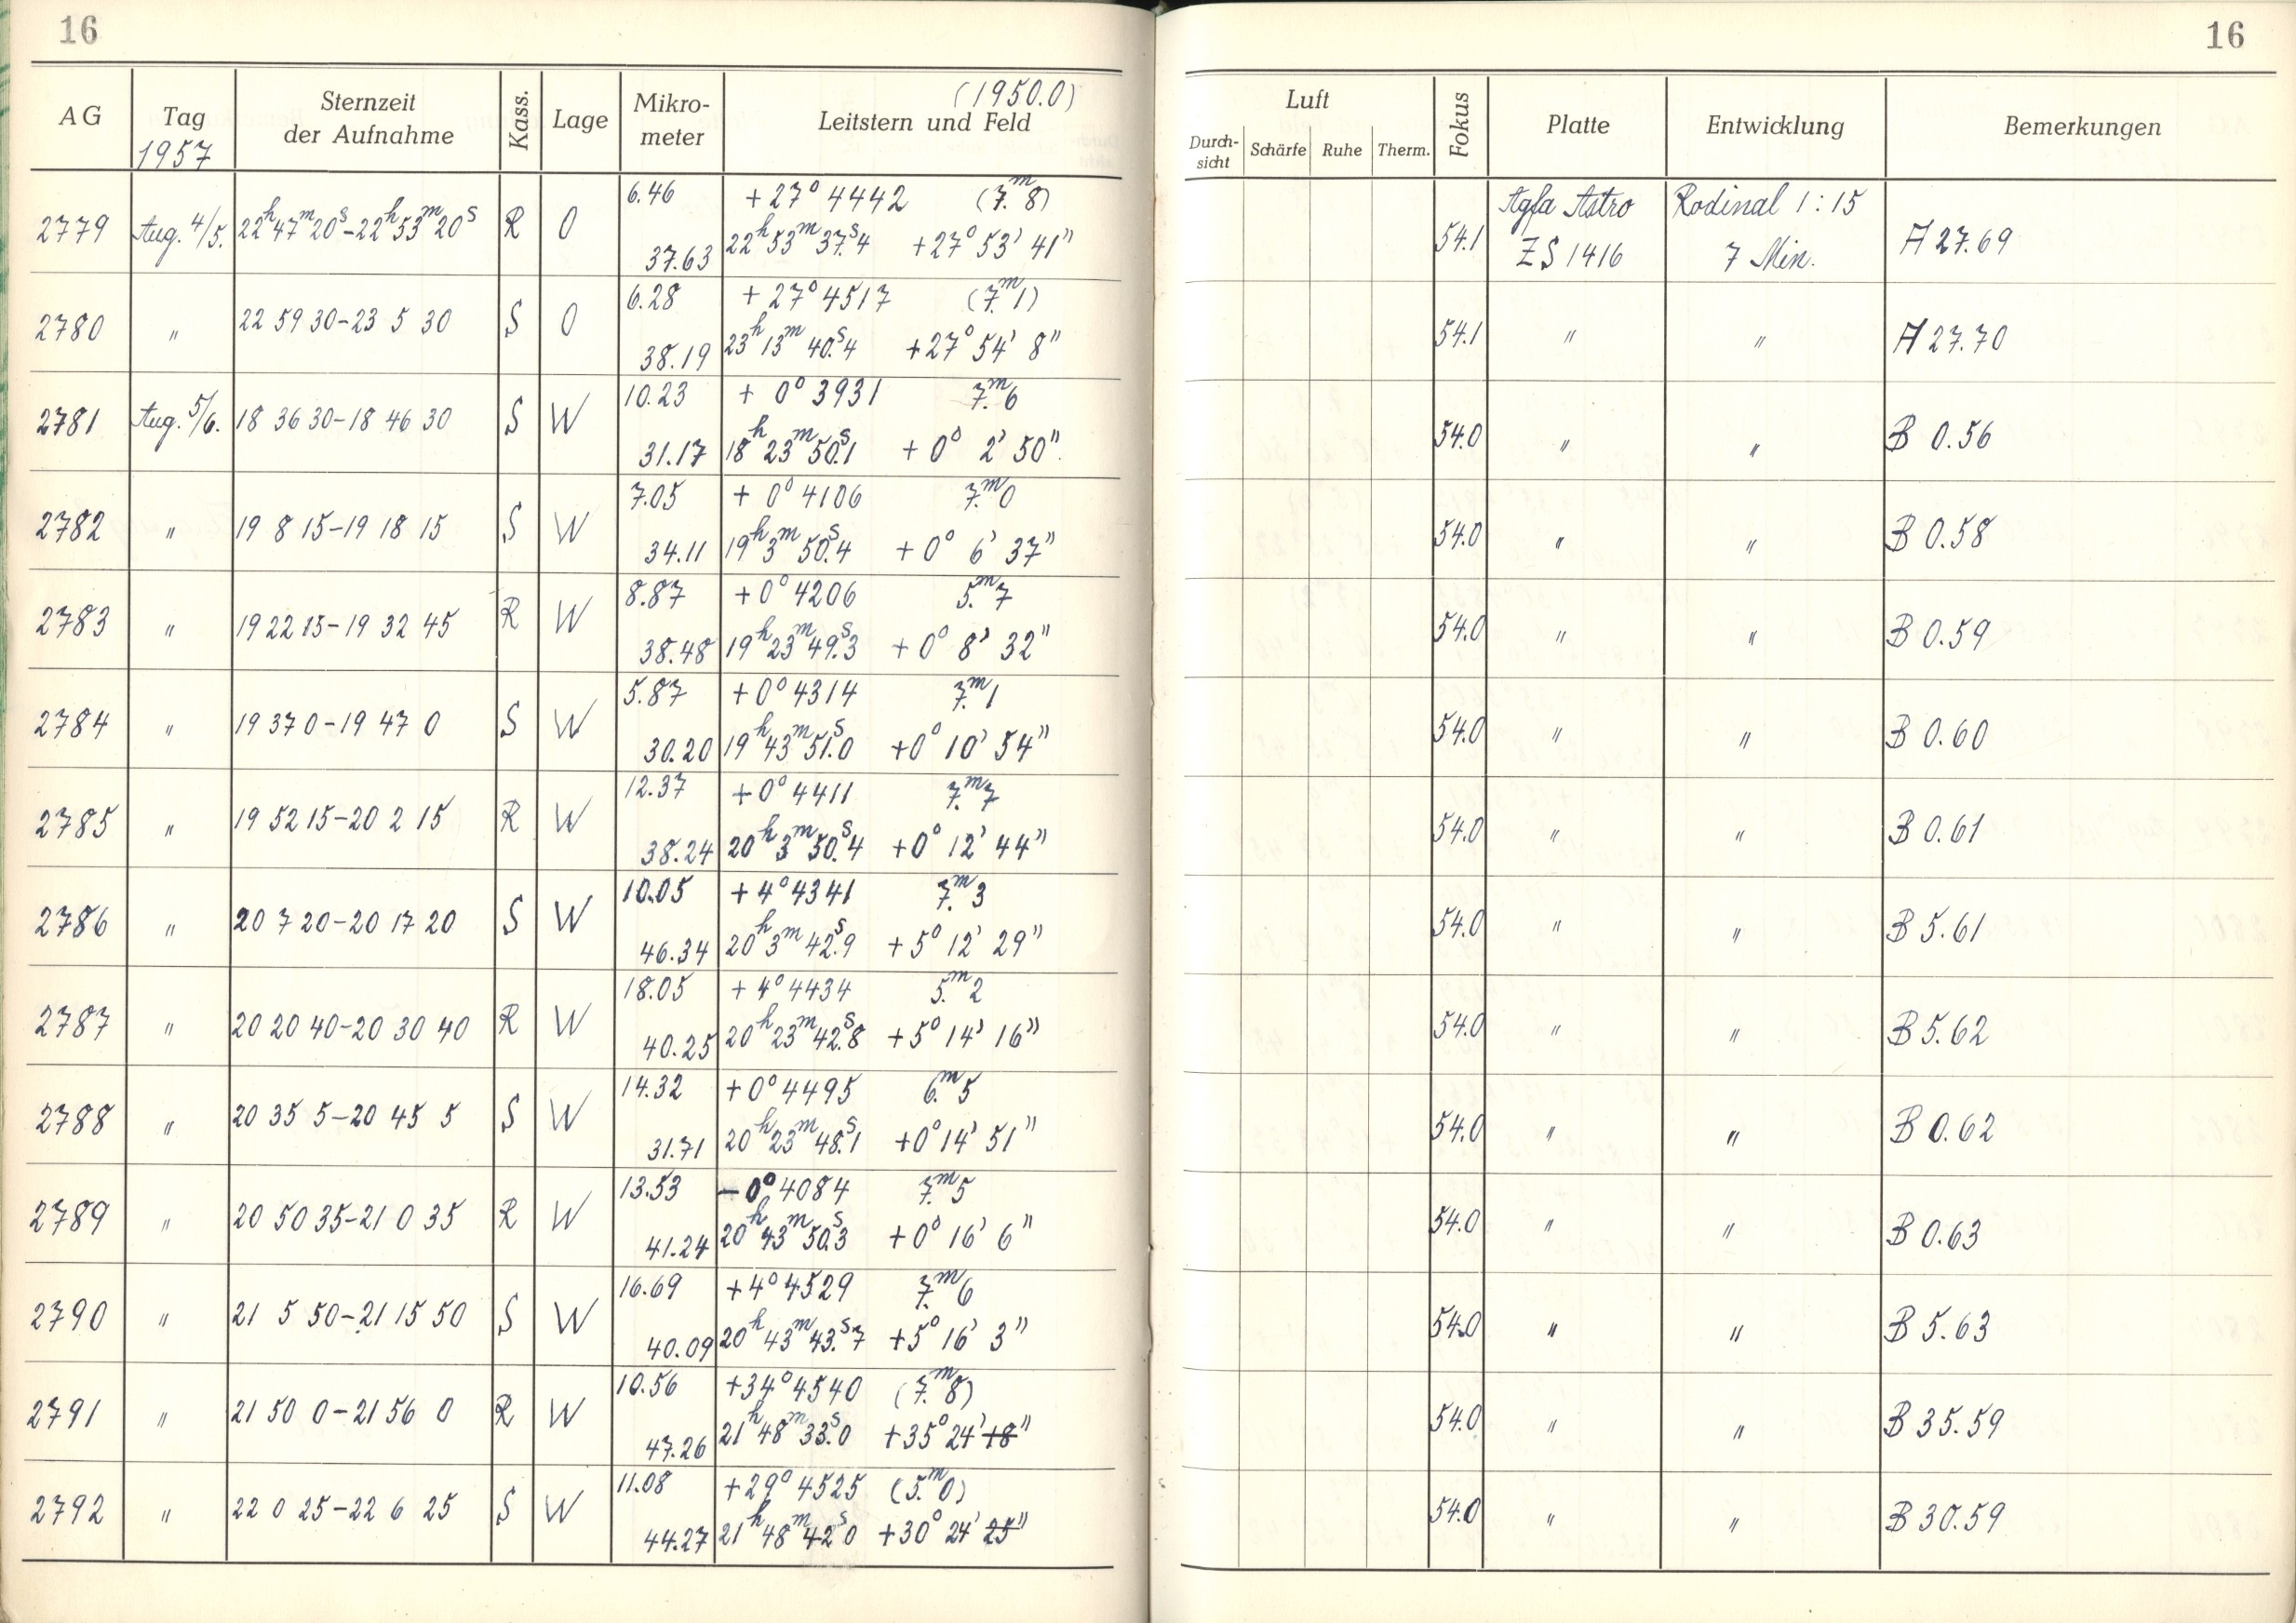 16
16
(1950.0)
AG Tag Sternzeit der Aufnahme Kass. Lage Mikro-meter Leitstern und Feld
1957
Luft
Durch-sicht Schärfe Ruhe Therm. Fokus Platte Entwicklung Bemerkungen
6.46 +27° 4442 (7.ᵐ8) Agfa Astro Rodinal 1:15
2779 Aug. 4/5. 22ʰ47ᵐ20ˢ–22ʰ53ᵐ20ˢ R O 54.1 A 27.69
37.63 22ʰ53ᵐ37.ˢ4 +27° 53' 41" ZS 1416 7 Min.
6.28 +27° 4517 (7.ᵐ1)
2780 " 22 59 30–23 5 30 S O 54.1 " " A 27.70
38.19 23ʰ13ᵐ40.ˢ4 +27° 54' 8"
10.23 + 0° 3931 7.ᵐ6
2781 Aug. 5/6. 18 36 30–18 46 30 S W 54.0 " " B 0.56
31.17 18ʰ23ᵐ50.ˢ1 + 0° 2' 50"
7.05 + 0° 4106 7.ᵐ0
2782 " 19 8 15–19 18 15 S W 54.0 " " B 0.58
34.11 19ʰ3ᵐ50.ˢ4 + 0° 6' 37"
8.87 +0° 4206 5.ᵐ7
2783 " 19 22 15–19 32 45 R W 54.0 " " B 0.59
38.48 19ʰ23ᵐ49.ˢ3 + 0° 8' 32"
5.87 +0° 4314 7.ᵐ1
2784 " 19 37 0–19 47 0 S W 54.0 " " B 0.60
30.20 19ʰ43ᵐ51.ˢ0 +0° 10' 54"
12.37 +0° 4411 7.ᵐ7
2785 " 19 52 15–20 2 15 R W 54.0 " " B 0.61
38.24 20ʰ3ᵐ50.ˢ4 +0° 12' 44"
10.05 +4° 4341 7.ᵐ3
2786 " 20 7 20–20 17 20 S W 54.0 " " B 5.61
46.34 20ʰ3ᵐ42.ˢ9 +5° 12' 29"
18.05 +4° 4434 5.ᵐ2
2787 " 20 20 40–20 30 40 R W 54.0 " " B 5.62
40.25 20ʰ23ᵐ42.ˢ8 +5° 14' 16"
14.32 +0° 4495 6.ᵐ5
2788 " 20 35 5–20 45 5 S W 54.0 " " B 0.62
31.71 20ʰ23ᵐ48.ˢ1 +0° 14' 51"
13.53 –0° 4084 7.ᵐ5
2789 " 20 50 35–21 0 35 R W 54.0 " " B 0.63
41.24 20ʰ43ᵐ50.ˢ3 +0° 16' 6"
16.69 +4° 4529 7.ᵐ6
2790 " 21 5 50–21 15 50 S W 54.0 " " B 5.63
40.09 20ʰ43ᵐ43.ˢ7 +5° 16' 3"
10.56 +34° 4540 (7.ᵐ8)
2791 " 21 50 0–21 56 0 R W 54.0 " " B 35.59
47.26 21ʰ48ᵐ33.ˢ0 +35° 24' 18"
11.08 +29° 4525 (5.ᵐ0)
2792 " 22 0 25–22 6 25 S W 54.0 " " B 30.59
44.27 21ʰ48ᵐ42ˢ0 +30° 24' 25"